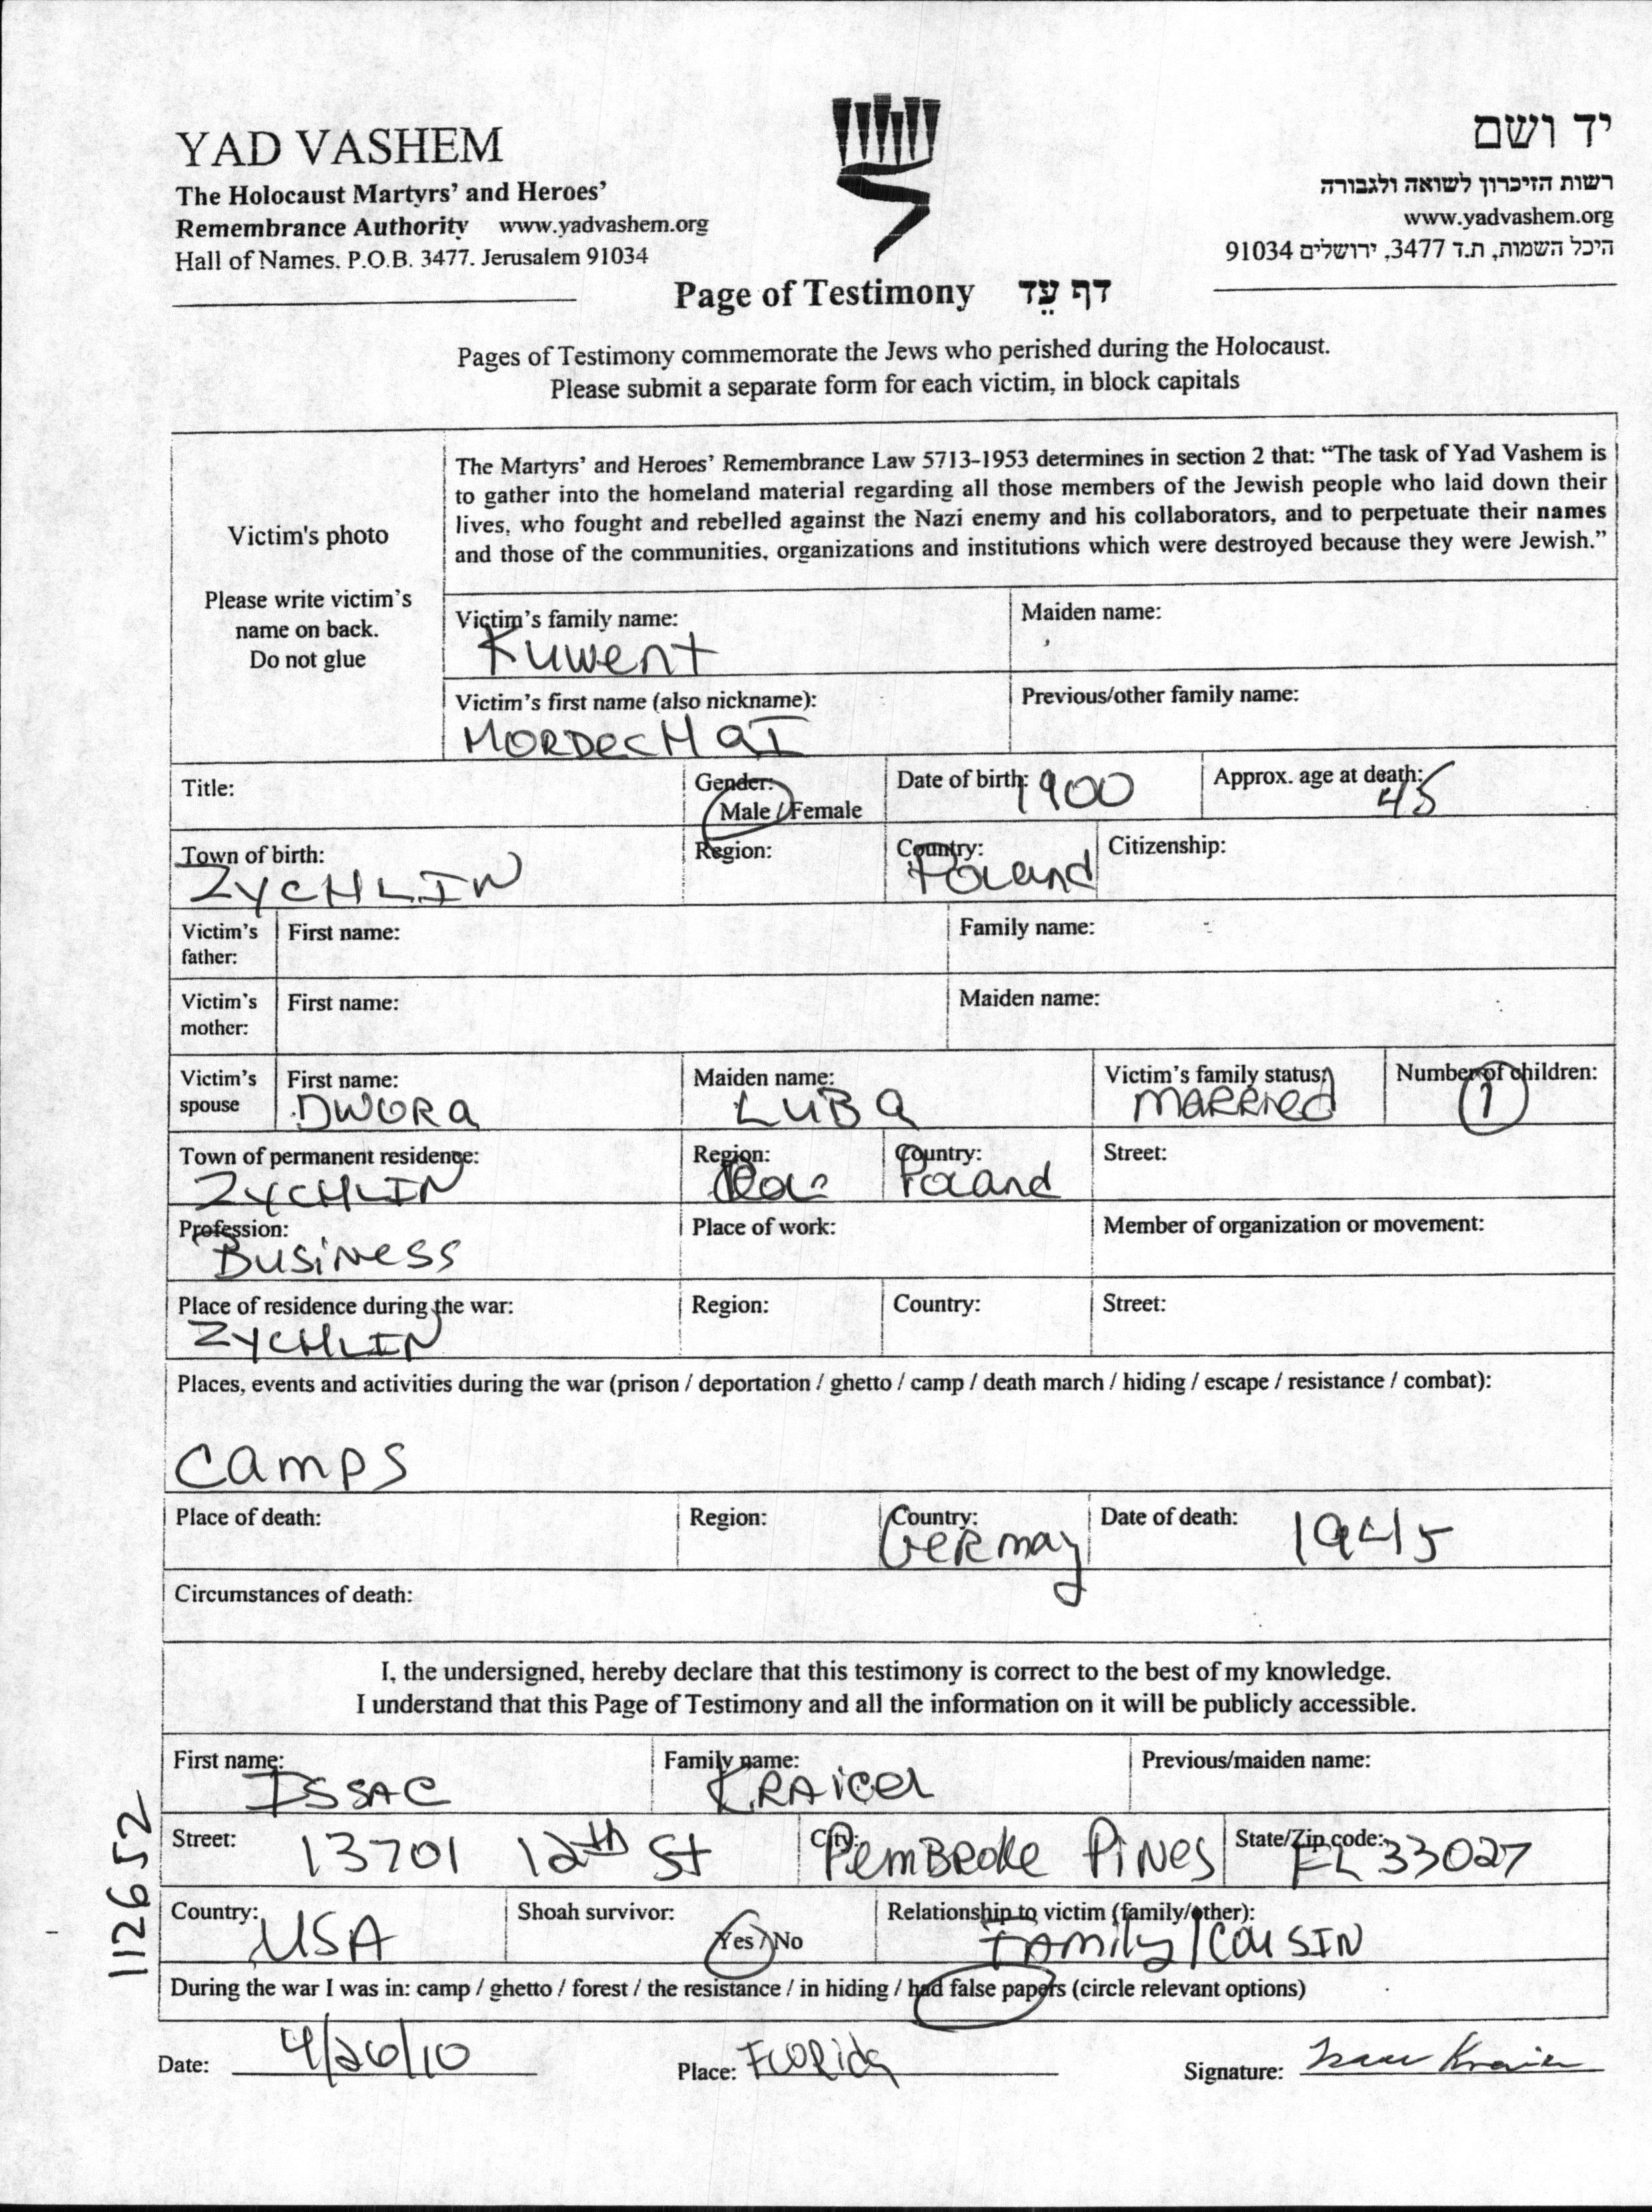 YAD VASHEM
The Holocaust Martyrs' and Heroes'
Remembrance Authority www.yadvashem.org
Hall of Names. P.O.B. 3477. Jerusalem 91034
יד ושם
רשות הזיכרון לשואה ולגבורה
www.yadvashem.org
היכל השמות, ת.ד 3477, ירושלים 91034
Page of Testimony דף עֵד
Pages of Testimony commemorate the Jews who perished during the Holocaust.
Please submit a separate form for each victim, in block capitals
Victim's photo
Please write victim's
name on back.
Do not glue
The Martyrs' and Heroes' Remembrance Law 5713-1953 determines in section 2 that: "The task of Yad Vashem is
to gather into the homeland material regarding all those members of the Jewish people who laid down their
lives, who fought and rebelled against the Nazi enemy and his collaborators, and to perpetuate their names
and those of the communities, organizations and institutions which were destroyed because they were Jewish."
Victim's family name: Maiden name:
Kuwent
Victim's first name (also nickname): Previous/other family name:
MORDECHaI
Title: Gender: Male / Female Date of birth: 1900 Approx. age at death: 45
Town of birth: Region: Country: Citizenship:
ZYCHLIN Poland
Victim's father: First name: Family name:
Victim's mother: First name: Maiden name:
Victim's spouse First name: Maiden name: Victim's family status: Number of children:
DWORa LUBa MARRIed 1
Town of permanent residence: Region: Country: Street:
ZYCHLIN Poland
Profession: Place of work: Member of organization or movement:
BusiNess
Place of residence during the war: Region: Country: Street:
ZYCHLIN
Places, events and activities during the war (prison / deportation / ghetto / camp / death march / hiding / escape / resistance / combat):
camps
Place of death: Region: Country: Date of death: 1945
Germay
Circumstances of death:
I, the undersigned, hereby declare that this testimony is correct to the best of my knowledge.
I understand that this Page of Testimony and all the information on it will be publicly accessible.
First name: Family name: Previous/maiden name:
ISSAC KRAicer
Street: 13701 12th St City: PemBRoke PiNes State/Zip code: FL 33027
Country: USA Shoah survivor: Yes / No Relationship to victim (family/other):
FAmily/CouSIN
During the war I was in: camp / ghetto / forest / the resistance / in hiding / had false papers (circle relevant options)
Date: 4/26/10 Place: FLORida Signature: Isaac Kraicer
112652